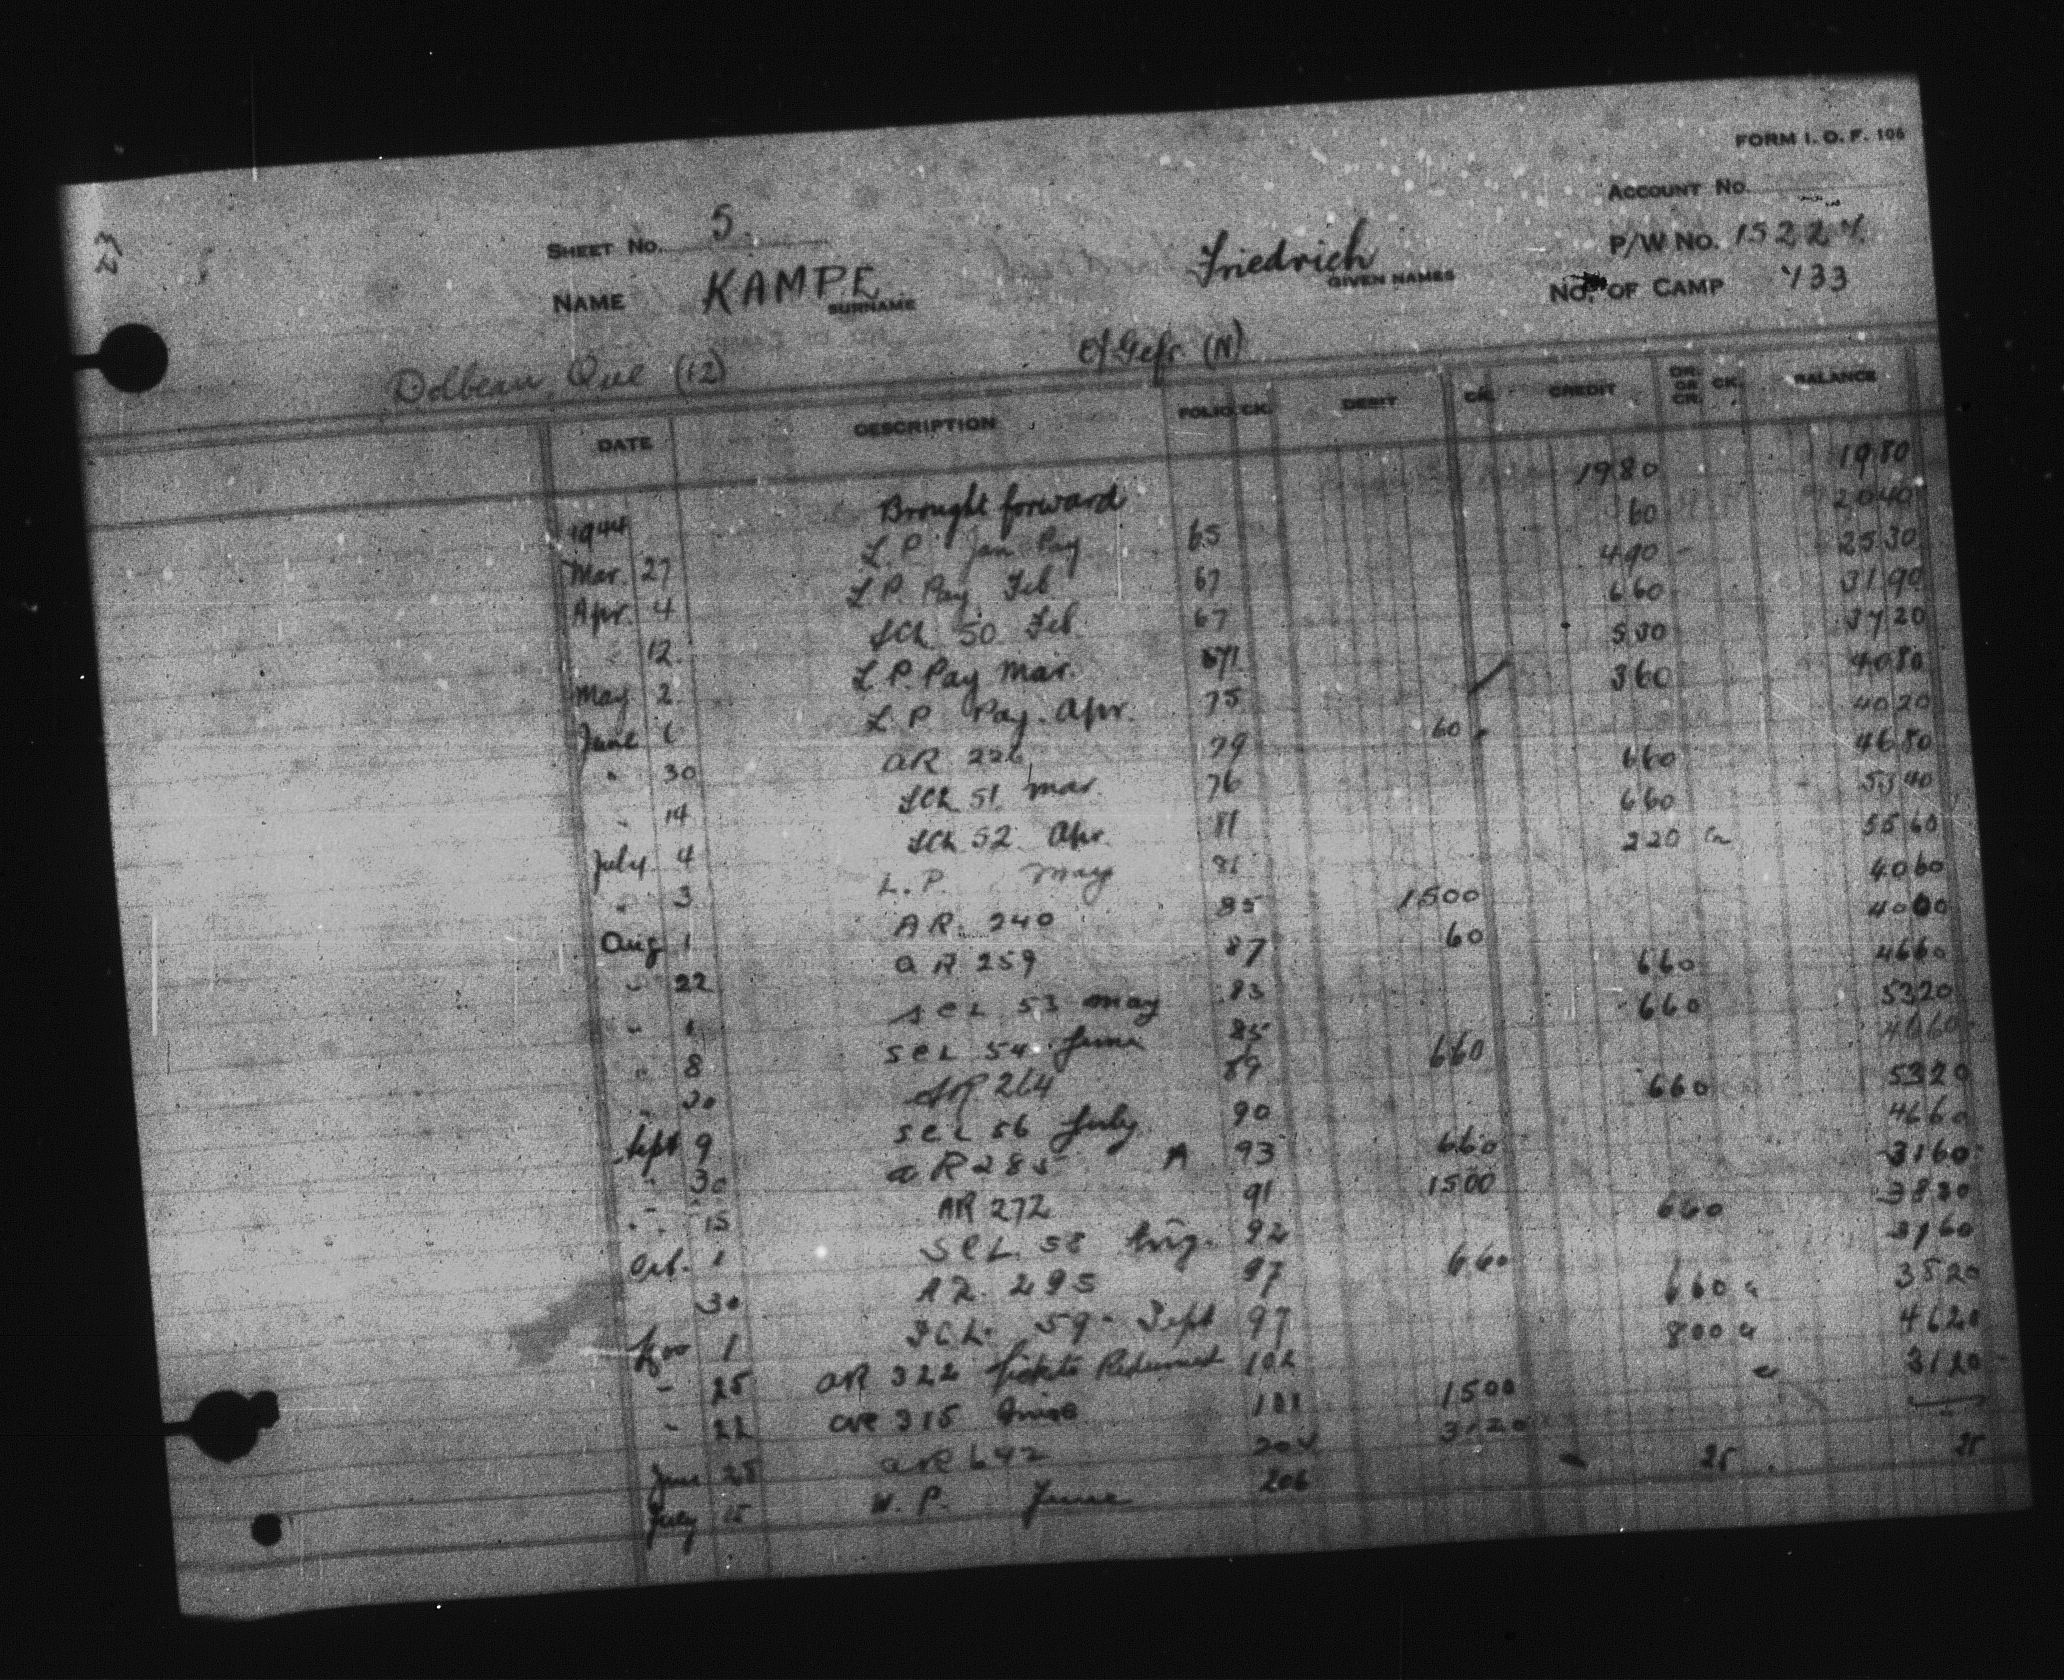 FORM I. O. F. 106
ACCOUNT No.
SHEET No. 5.
P/W No. 15224
NAME KAMPE Friedrich
SURNAME GIVEN NAMES
No. OF CAMP 133
Dolbeau, Que (12) O/Gefr. (N)
DATE DESCRIPTION FOLIO CK. DEBIT CK. CREDIT DR. OR CR. CK. BALANCE
1944 Brought forward 1980 1980
Mar. 27 L.P. Jan Pay 65 60 2040
Apr. 4 L.P. Pay Feb 67 490 2530
" 12. SCL 50 Feb. 67 660 3190
May 2 L.P. Pay Mar. 71 530 3720
June 6 L.P. Pay. Apr. 75 360 4080
" 30 AR 226 79 60 4020
" 14 SCL 51 Mar 76 660 4680
July 4 SCL 52 Apr. 81 660 5340
" 3 L.P. May 81 220 5560
Aug 1 AR. 240 85 1500 4060
" 22 AR 259 87 60 4000
" 1 SCL 53 May 83 660 4660
" 8 SCL 54 June 85 660 5320
" 30 AR 264 89 660 4660
Sept 9 SCL 56 July 90 660 5320
" 30 AR 285 A 93 660 4660
" 15 AR 272 91 1500 3160
Oct. 1 SCL 58 Aug. 92 660 3820
30 AR. 295 97 660 3160
Nov 1 SCL. 59 - Sept 97 660 3820
" 25 AR 322 Tickets Returned 102 800 4620
" 22 AR 315 101 1500 3120
June 25 AR 642 204 3120
July 15 W.P. June 206 25 25